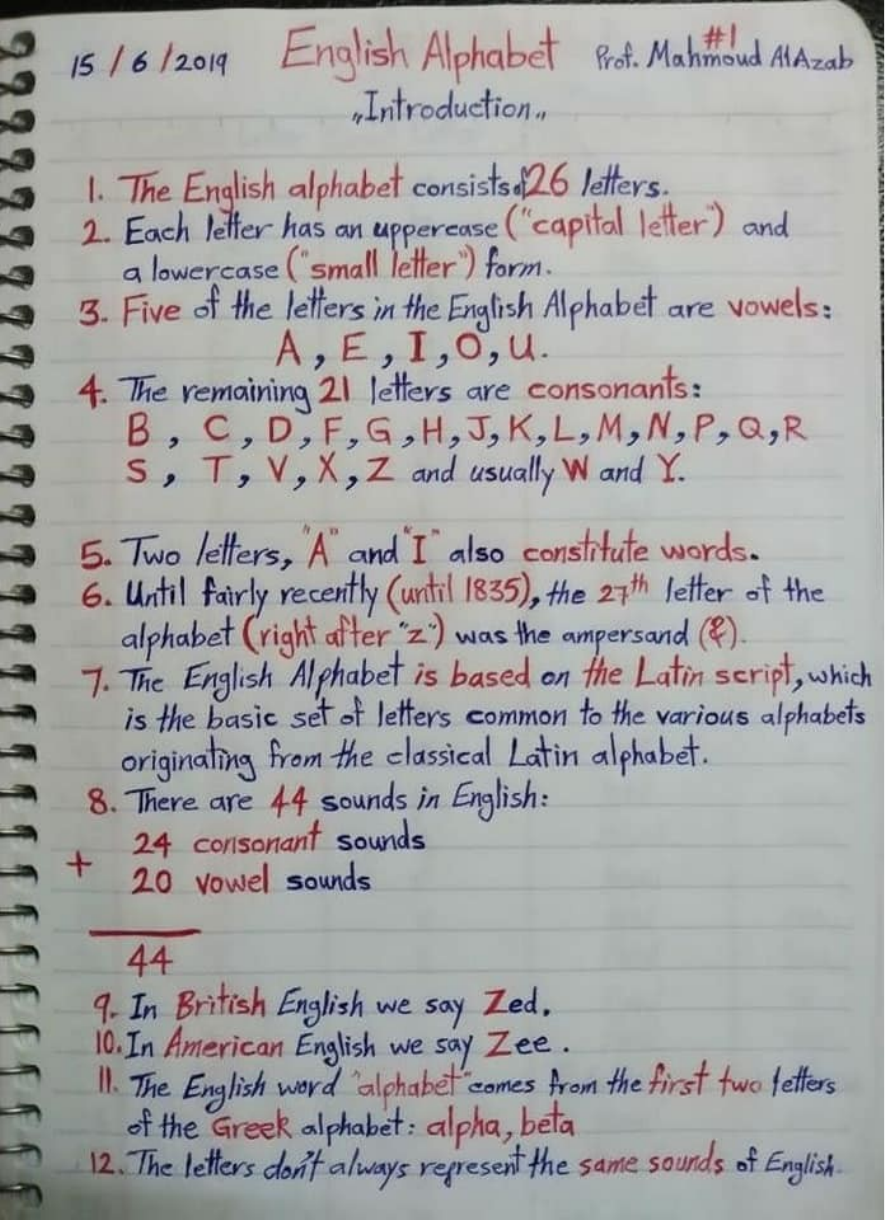 15 / 6 / 2019 English Alphabet #1 Prof. Mahmoud AlAzab
"Introduction"
1. The English alphabet consists of 26 letters.
2. Each letter has an uppercase ("capital letter") and
a lowercase ("small letter") form.
3. Five of the letters in the English Alphabet are vowels:
A, E, I, O, U.
4. The remaining 21 letters are consonants:
B, C, D, F, G, H, J, K, L, M, N, P, Q, R
S, T, V, X, Z and usually W and Y.
5. Two letters, "A" and "I" also constitute words.
6. Until fairly recently (until 1835), the 27th letter of the
alphabet (right after "z") was the ampersand (&).
7. The English Alphabet is based on the Latin script, which
is the basic set of letters common to the various alphabets
originating from the classical Latin alphabet.
8. There are 44 sounds in English:
24 consonant sounds
+
20 vowel sounds
44
9. In British English we say Zed.
10. In American English we say Zee.
11. The English word "alphabet" comes from the first two letters
of the Greek alphabet: alpha, beta
12. The letters don't always represent the same sounds of English.